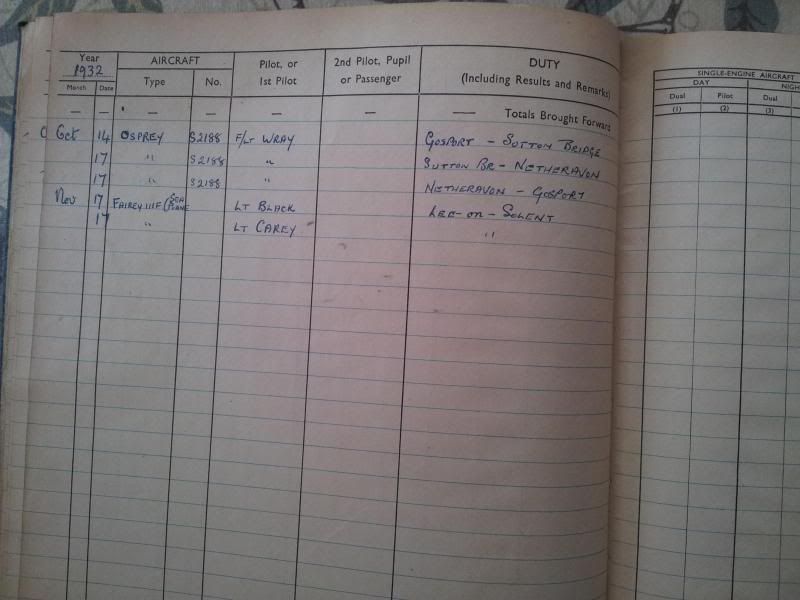 Year AIRCRAFT Pilot, or 2nd Pilot, Pupil DUTY SINGLE-ENGINE AIRCRAFT
1932 1st Pilot or Passenger (Including Results and Remarks) DAY
Month Date Type No. Dual Pilot Dual
(1) (2) (3)
— — — — — — —— Totals Brought Forward
Oct 14 OSPREY S2188 F/LT WRAY GOSPORT – SUTTON BRIDGE
17 " S2188 " SUTTON BR – NETHERAVON
17 " S2188 " NETHERAVON – GOSPORT
Nov 17 FAIREY IIIF (SEA PLANE LT BLACK LEE-ON-SOLENT
17 " LT CAREY "